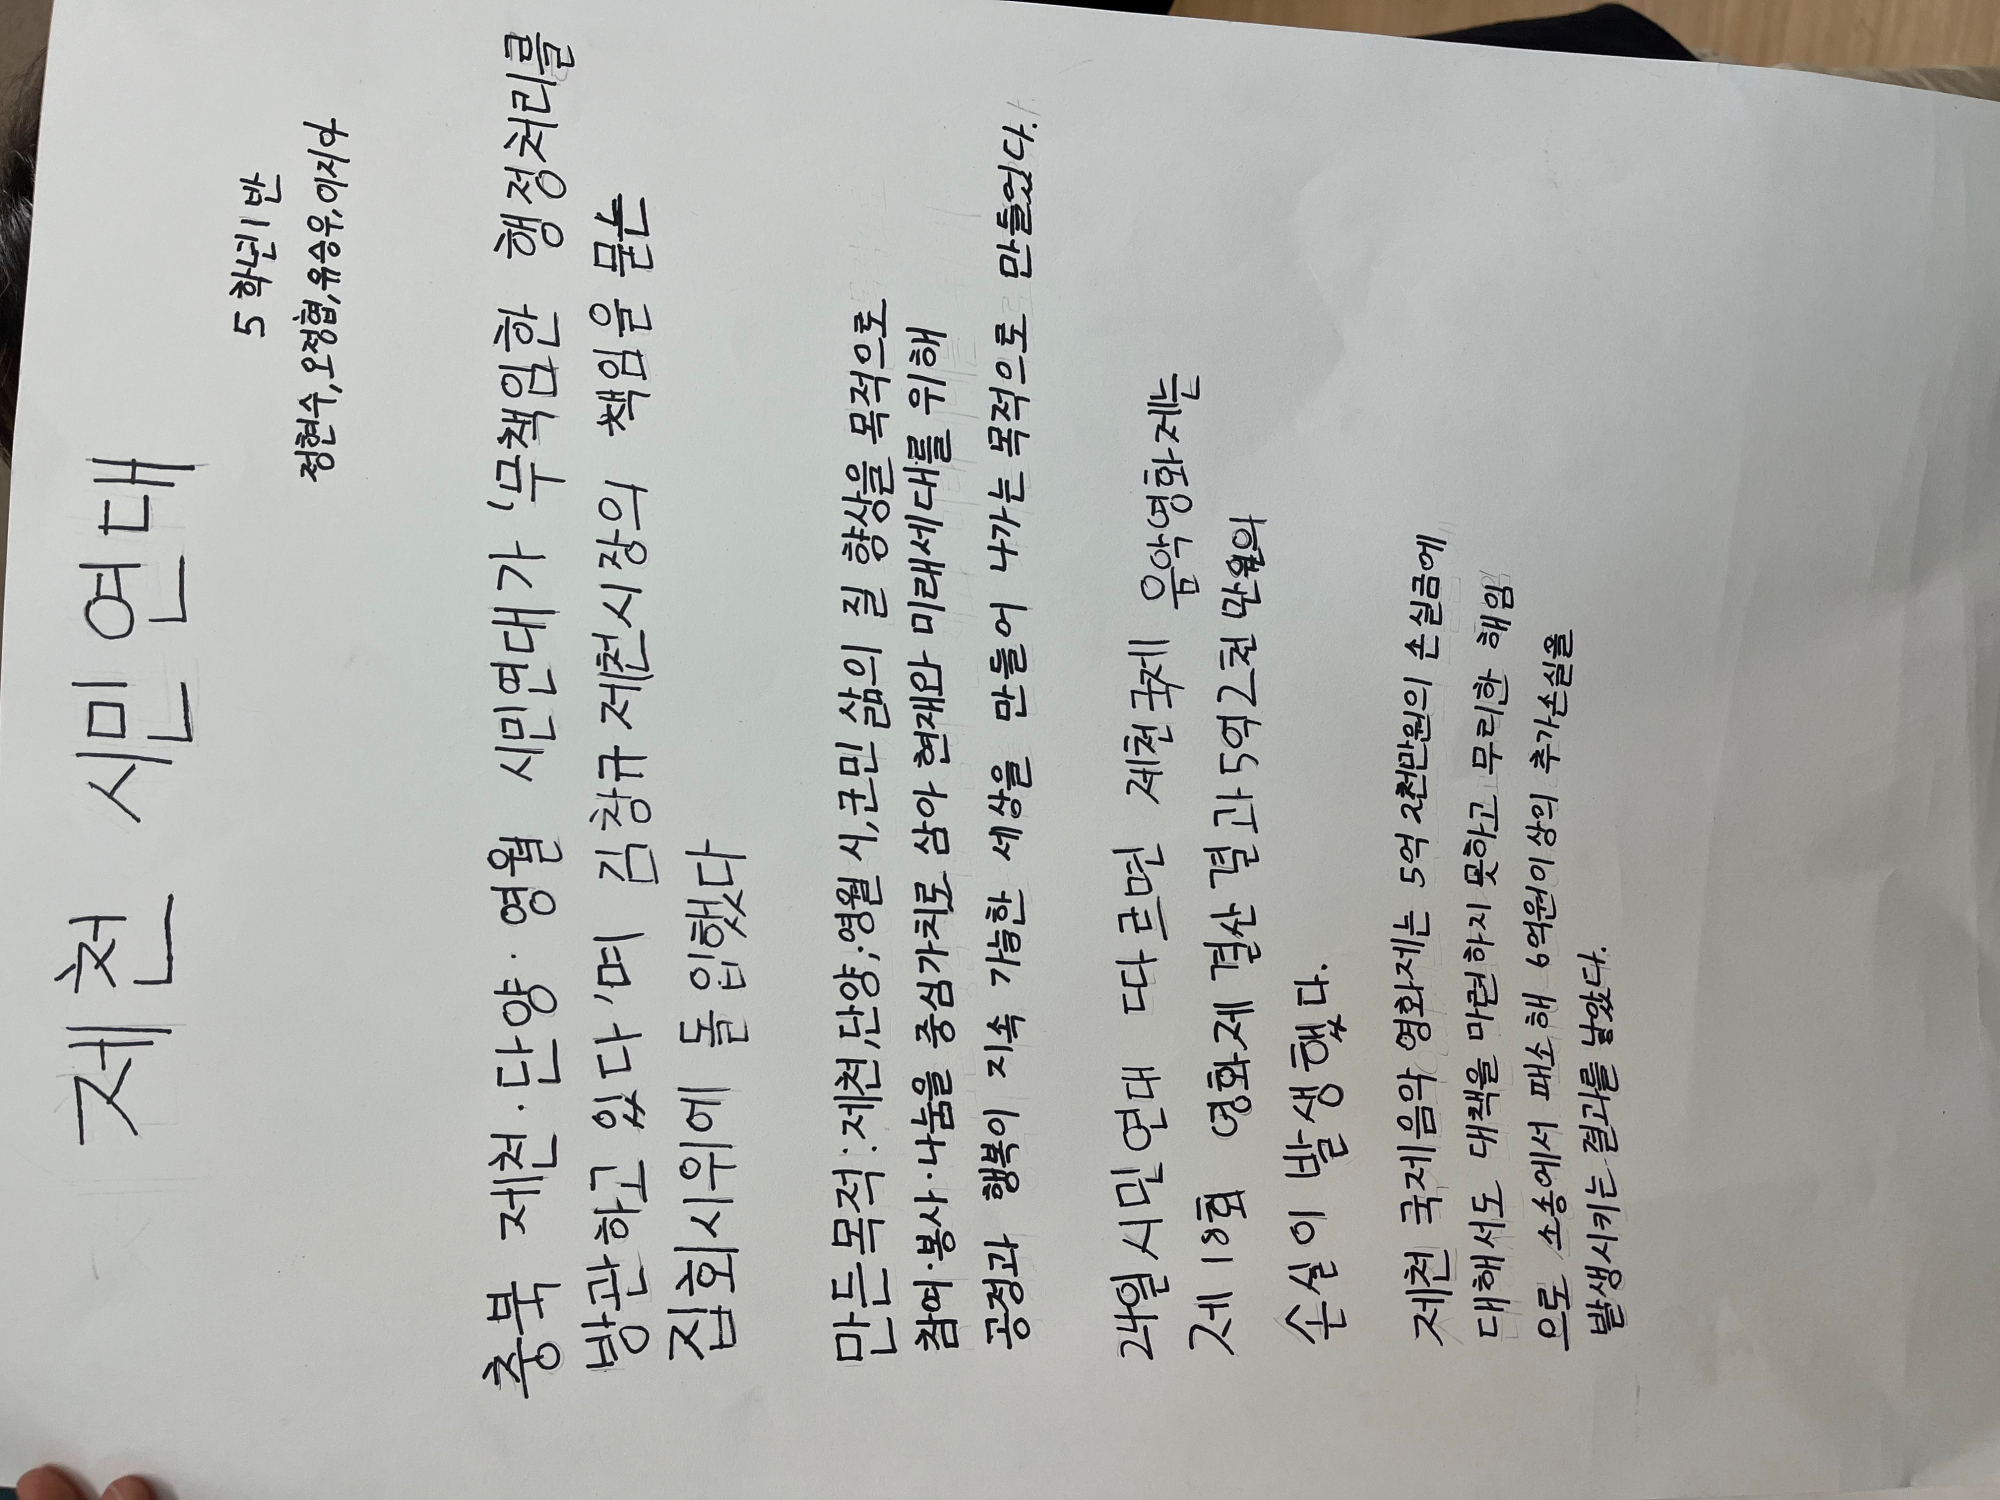 제천 시민연대
5학년 1반
정현수,오정협,유승우,이지아
충북 제천·단양·영월 시민연대가 '무책임한 행정처리를
방관하고 있다'며 김창규 제천시장의 책임을 묻는
집회시위에 돌입했다
만든목적:제천,단양,영월 시,군민 삶의 질 향상을 목적으로
참여·봉사·나눔을 중심가치로 삼아 현재와 미래세대를 위해
공정과 행복이 지속 가능한 세상을 만들어 나가는 목적으로 만들었다.
24일 시민연대 따르면 제천국제 음악영화제는
제 18회 영화제 결산 결과 5억 2천만원의
손실이 발생했다.
제천 국제음악 영화제는 5억 2천만원의 손실금에
대해서도 대책을 마련하지 못하고 무리한 해임
으로 소송에서 패소해 6억원이상의 추가손실을
발생시키는 결과를 낳았다.